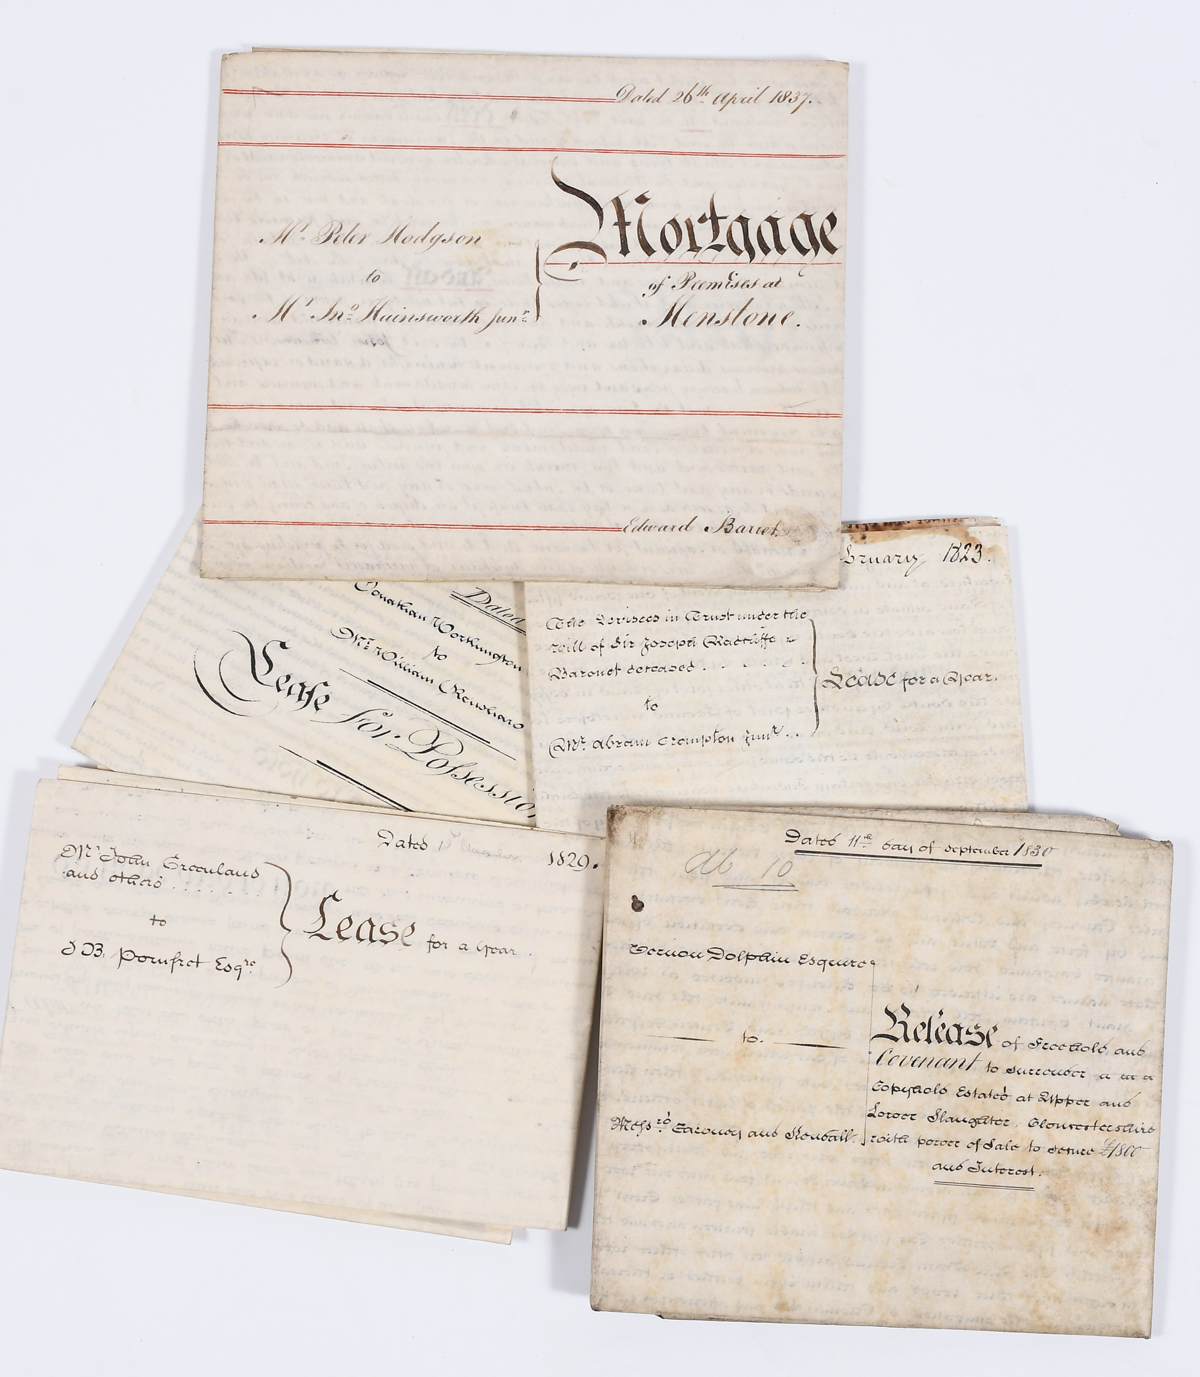 Dated 26th April 1837.
Mortgage
of Premises at
Menstone.
Mr. Peter Hodgson
to
Mr. Jno. Hainsworth Junr.
Edward Barret
Dated
Jonathan Worthington
to
Mr. William Renshaw
Lease for Possession
bruary 1823.
The Devisees in Trust under the
Will of Sir Joseph Radcliffe
Baronet deceased . . . . . .
to
Mr. Abram Crompton Junr. . .
Lease for a Year.
Dated 1829.
Mr. Joan Greenland
and others . . . . . .
to
J B. Pomfret Esqre.
Lease for a Year.
Dated 11th day of September 1830
Ab 10
Vernon Dolphin Esquire
to
Messrs. and Kendall
Release of Freehold and
Covenant to surrender a
Copyhold Estates at Upper and
Lower Slaughter, Gloucestershire
with power of Sale to secure £1800
and Interest.